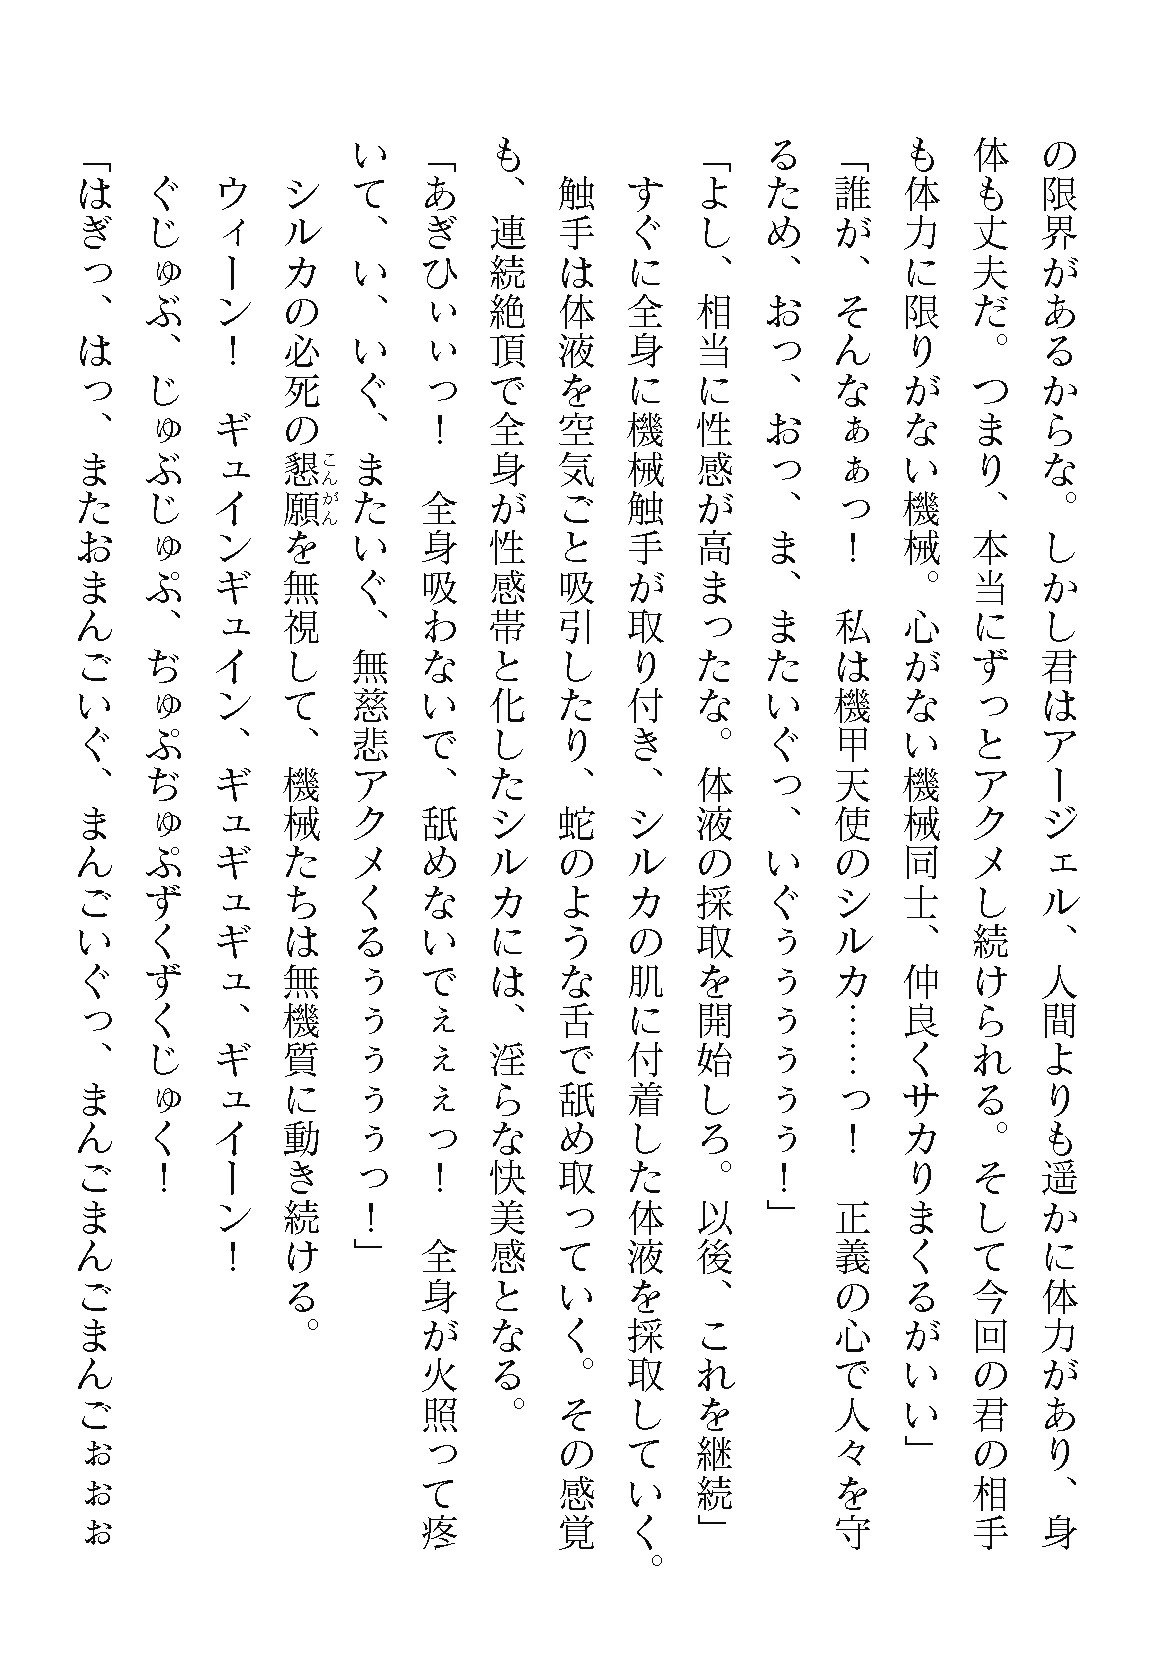 の限界があるからな。しかし君はアージェル、人間よりも遥かに体力があり、身
体も丈夫だ。つまり、本当にずっとアクメし続けられる。そして今回の君の相手
も体力に限りがない機械。心がない機械同士、仲良くサカりまくるがいい」
「誰が、そんなぁぁっ！　私は機甲天使のシルカ……っ！　正義の心で人々を守
るため、おっ、おっ、ま、またいぐっ、いぐぅぅぅぅぅぅ！」
「よし、相当に性感が高まったな。体液の採取を開始しろ。以後、これを継続」
　すぐに全身に機械触手が取り付き、シルカの肌に付着した体液を採取していく。
　触手は体液を空気ごと吸引したり、蛇のような舌で舐め取っていく。その感覚
も、連続絶頂で全身が性感帯と化したシルカには、淫らな快美感となる。
「あぎひぃぃっ！　全身吸わないで、舐めないでぇぇぇっ！　全身が火照って疼
いて、い、いぐ、またいぐ、無慈悲アクメくるぅぅぅぅぅっ！」
　シルカの必死の懇願こんがんを無視して、機械たちは無機質に動き続ける。
　ウィーン！　ギュインギュイン、ギュギュギュ、ギュイーン！
　ぐじゅぶ、じゅぶじゅぷ、ぢゅぷぢゅぷずくずくじゅく！
「はぎっ、はっ、またおまんごいぐ、まんごいぐっ、まんごまんごまんごぉぉぉ